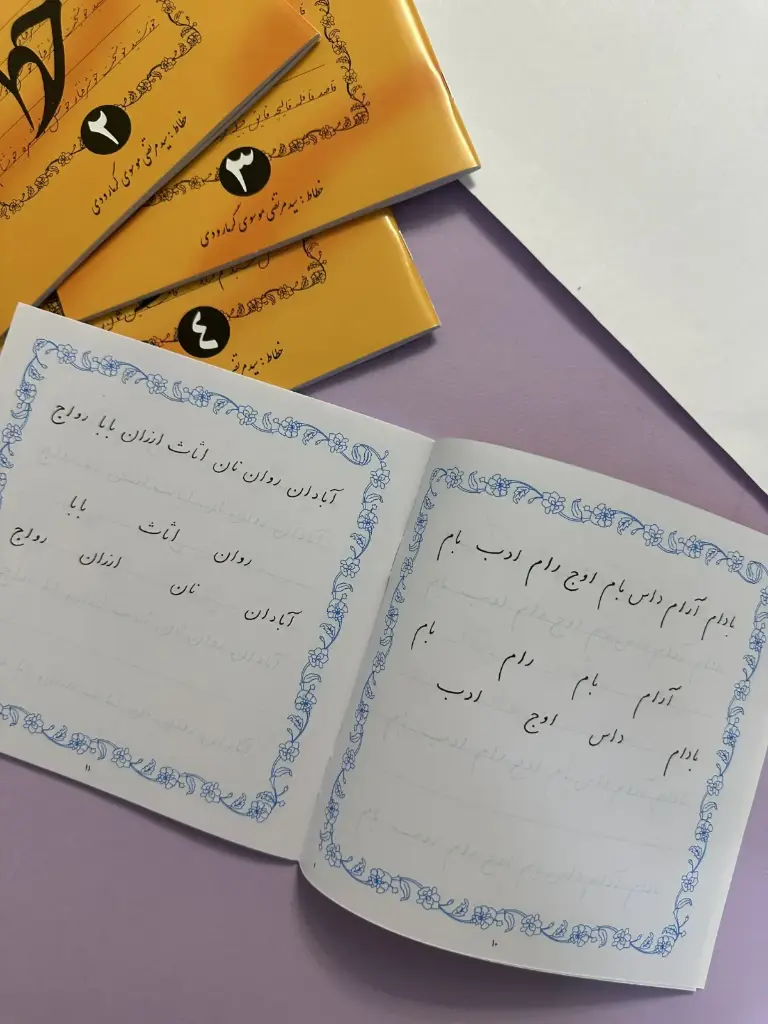 ۲
خطاط: سید مرتضی موسوی گرمارودی
۳
خطاط: سید مرتضی موسوی گرمارودی
۴
خطاط: سید مرتضی
بادام آرام داس بام اوج رام ادب بام
آرام بام رام بام
بادام داس اوج ادب
۱۰
آبادان روان نان اثاث ارزان بابا رواج
روان اثاث بابا
آبادان نان ارزان رواج
۱۱